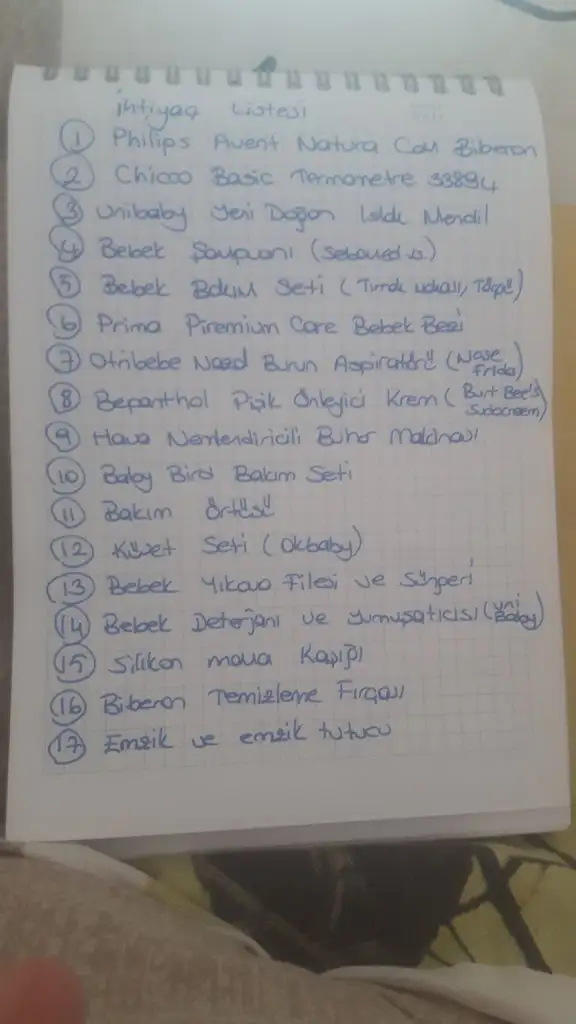 ihtiyaç Listesi
1 Philips Avent Natura Cam Biberon
2 Chicco Basic Termometre 33894
3 Unibaby Yeni Doğan Islak Mendil
4 Bebek Şampuanı (Sebamed
5 Bebek Bakım Seti (Tırnak makası, Törpü)
6 Prima Piremium Care Bebek Bezi
7 Otribebe Nazal Burun Aspiratörü (Nose
Frida)
8 Bepanthol Pişik Önleyici Krem (Burt Bee's
Sudocreem)
9 Hava Nemlendiricili Buhar Makinası
10 Baby Bird Bakım Seti
11 Bakım Örtüsü
12 Küvet Seti (Okbaby)
13 Bebek Yıkava Filesi ve Süngeri
14 Bebek Deterjanı ve yumuşatıcısı (uni
Baby)
15 Silikon mava Kaşığı
16 Biberon Temizleme Fırçası
17 Emzik ve emzik tutucu